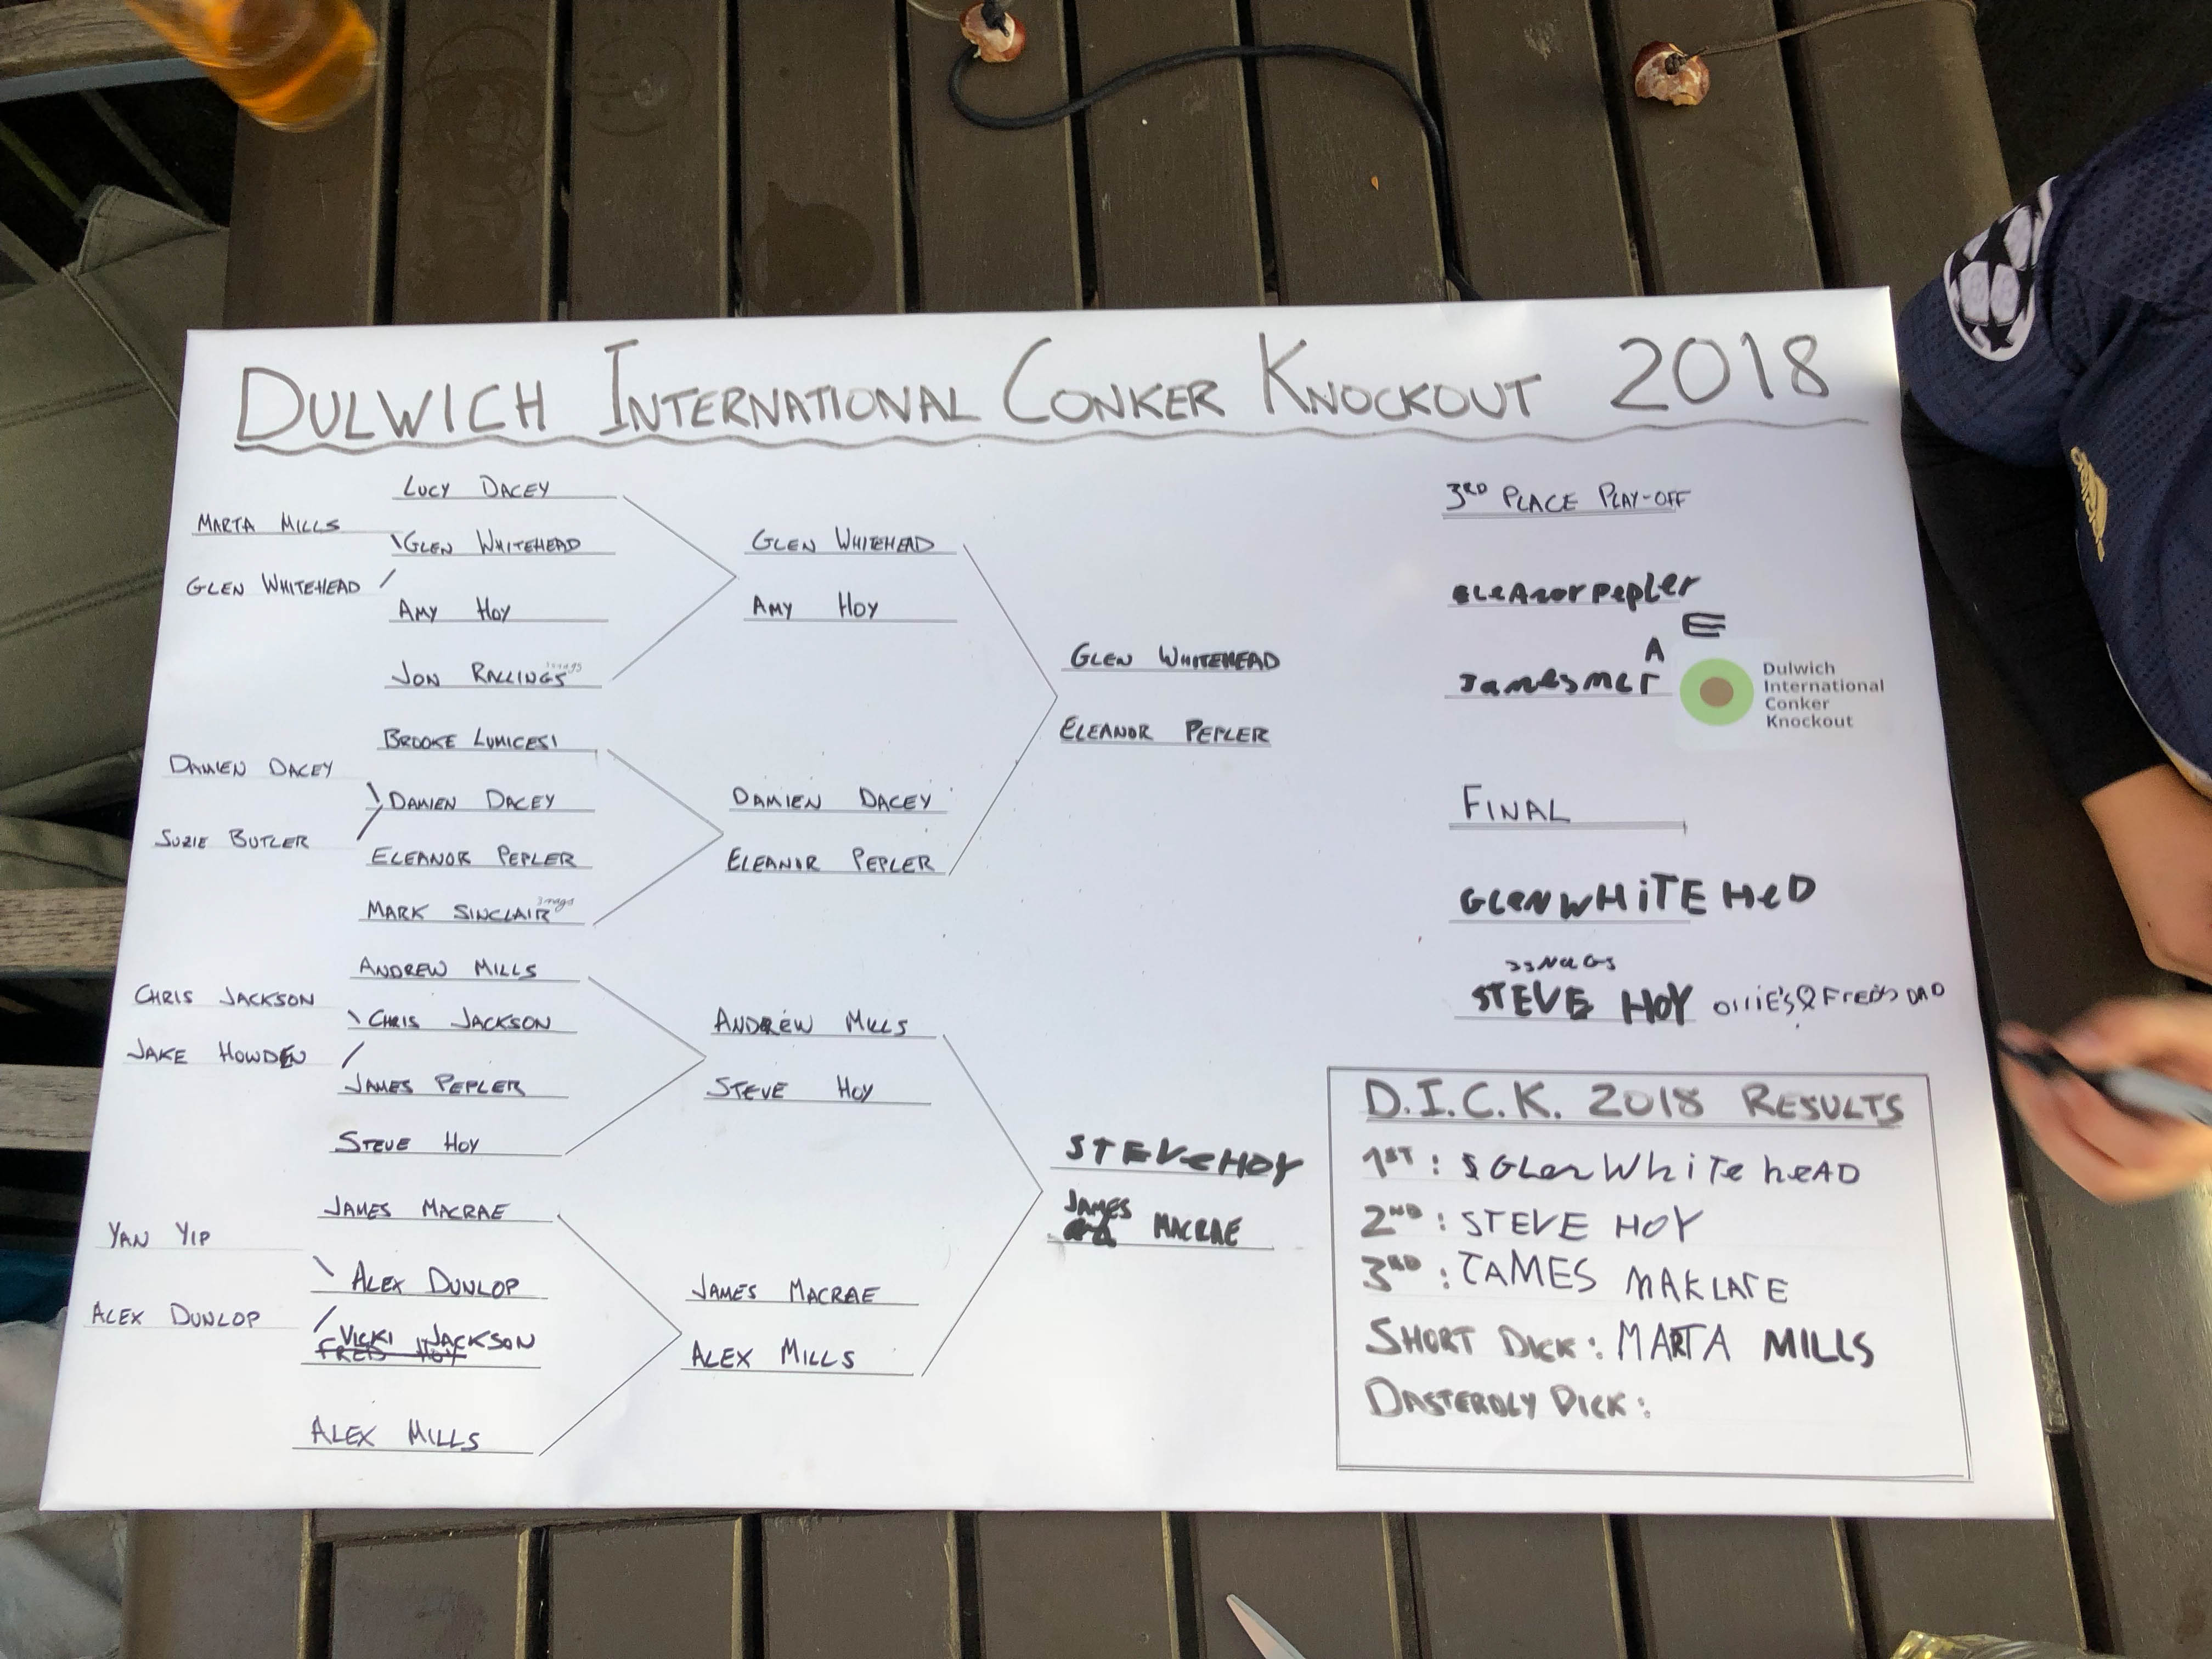 DULWICH INTERNATIONAL CONKER KNOCKOUT 2018
MARTA MILLS
GLEN WHITEHEAD
DAMIEN DACEY
SUZIE BUTLER
CHRIS JACKSON
JAKE HOWDEN
YAN YIP
ALEX DUNLOP
LUCY DACEY
GLEN WHITEHEAD
AMY HOY
JON RALLINGS
BROOKE LUMICESI
DAMIEN DACEY
ELEANOR PEPLER
MARK SINCLAIR 3nags
ANDREW MILLS
CHRIS JACKSON
JAMES PEPLER
STEVE HOY
JAMES MACRAE
ALEX DUNLOP
VICKI JACKSON
FRED HOY
ALEX MILLS
GLEN WHITEHEAD
AMY HOY
DAMIEN DACEY
ELEANOR PEPLER
ANDREW MILLS
STEVE HOY
JAMES MACRAE
ALEX MILLS
GLEN WHITEHEAD
ELEANOR PEPLER
STEVE HOY
JAMES MACRAE
3RD PLACE PLAY-OFF
ELeAnor Pepler
E
A
James Mcr
Dulwich
International
Conker
Knockout
FINAL
GLeN WHiTE HeD
STEVE HOY OLLIE'S & FRED'S DAD
D.I.C.K. 2018 RESULTS
1ST: GLen White heAD
2ND: STEVE HOY
3RD: JAMES MAKLARE
SHORT DICK: MARTA MILLS
DASTERDLY DICK: